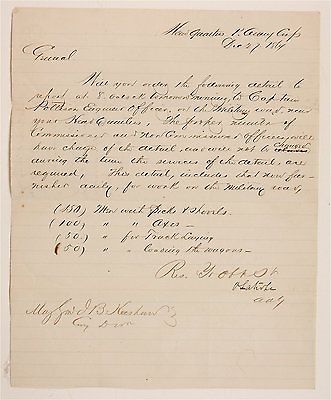 Head Quarters 1st Army Corps
Dec 29 1864
General
Will you order the following detail to
report at 8 oclock tomorrow morning, to Captain
Engineer Officer, on the Military road, near
your Head Quarters, The proper number of
Commissioned and non Commissioned Officers, will
have charge of the detail, and will not be changed
during the time the services of the detail are
required, This detail, includes that now fur-
nished daily, for work on the Military road,
(150) Men with Picks & Shovels.
(100) " " Axes —
(50) " for Track Laying
(50) " " Loading the wagons —
Res. Yr Obt St
AAG
Maj Gen J. B. Kershaw
Comg Divn